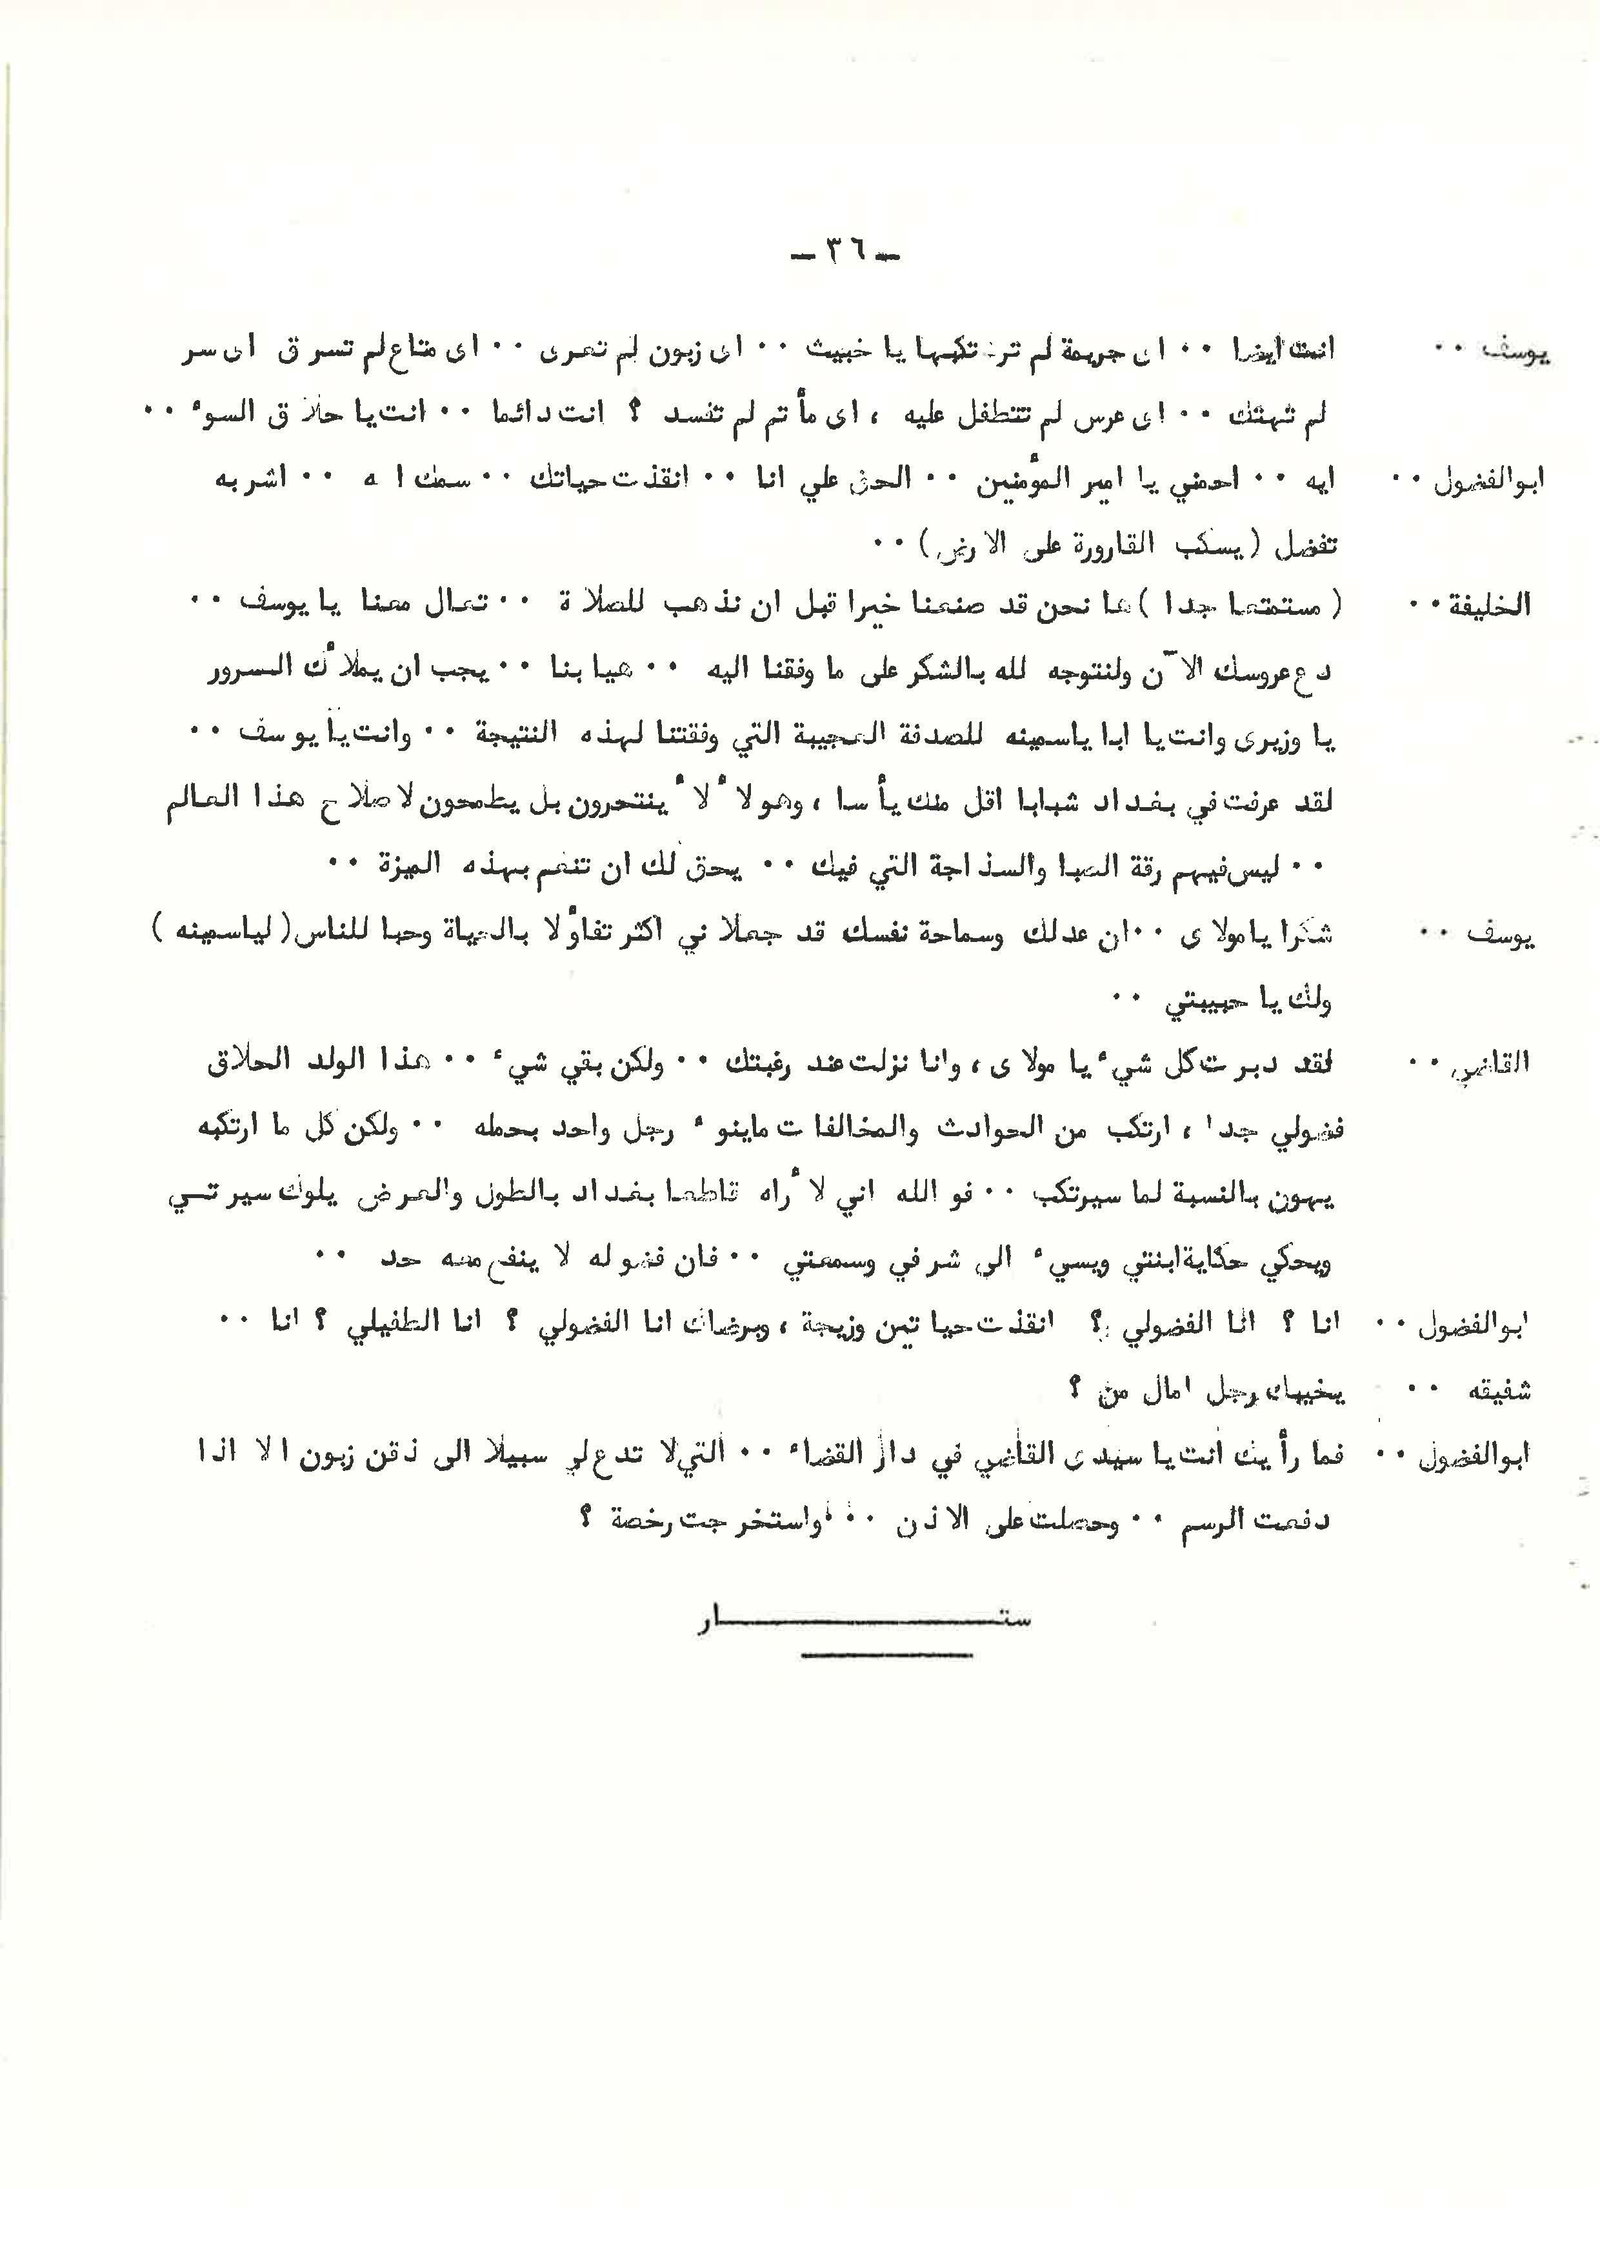 ــ ٣٦ ــ
يوسف ٠٠ انت ايضا ٠٠ اى جريمة لم ترتكبها يا خبيث ٠٠ اى زبون لم تعرى ٠٠ اى متاع لم تسرق اى سر
لم تهتك ٠٠ اى عرس لم تتطفل عليه ، اى مأتم لم تفسد ؟ انت دائما ٠٠ انت يا حلاق السوء ٠٠
ابو الفضول ٠٠ ايه ٠٠ احمني يا امير المؤمنين ٠٠ الحق علي انا ٠٠ انقذت حياتك ٠٠ سمك اه ٠٠ اشربه
تفضل (يسكب القارورة على الارض) ٠٠
الخليفة ٠٠ (مستمتعا جدا) ها نحن قد صنعنا خيرا قبل ان نذهب للصلاة ٠٠ تعال معنا يا يوسف ٠٠
دع عروسك الآن ولنتوجه لله بالشكر على ما وفقنا اليه ٠٠ هيا بنا ٠٠ يجب ان يملأك السرور
يا وزيرى وانت يا ابا ياسمينه للصدفة العجيبة التي وفقتنا لهذه النتيجة ٠٠ وانت يا يوسف ٠٠
لقد عرفت في بغداد شبابا اقل منك يأسا ، وهولأ لأ ينتحرون بل يطمحون لاصلاح هذا العالم
٠٠ ليس فيهم رقة الصبا والسذاجة التي فيك ٠٠ يحق لك ان تنعم بهذه الميزة ٠٠
يوسف ٠٠ شكرا يا مولاى ٠٠ ان عدلك وسماحة نفسك قد جعلاني اكثر تفاؤلا بالحياة وحبا للناس (لياسمينه)
ولك يا حبيبتي ٠٠
القاضي ٠٠ لقد دبرت كل شيء يا مولاى ، وانا نزلت عند رغبتك ٠٠ ولكن بقي شيء ٠٠ هذا الولد الحلاق
فضولي جدا ، ارتكب من الحوادث والمخالفات ماينوء رجل واحد بحمله ٠٠ ولكن كل ما ارتكبه
يهون بالنسبة لما سيرتكب ٠٠ فو الله اني لأراه قاطعا بغداد بالطول والعرض يلوك سيرتي
ويحكي حكاية ابنتي ويسيء الى شرفي وسمعتي ٠٠ فان فضوله لا ينفع معه حد ٠٠
ابو الفضول ٠٠ انا ؟ انا الفضولي ؟ انقذت حياتين وزيجة ، وبرضاك انا الفضولي ؟ انا الطفيلي ؟ انا ٠٠
شفيقه ٠٠ يخيبك رجل امال من ؟
ابو الفضول ٠٠ فما رأيك انت يا سيدى القاضي في دار القضاء ٠٠ التي لا تدع لي سبيلا الى ذقن زبون الا اذا
دفعت الرسم ٠٠ وحصلت على الاذن ٠٠ واستخرجت رخصة ؟
ستـــــــــــار